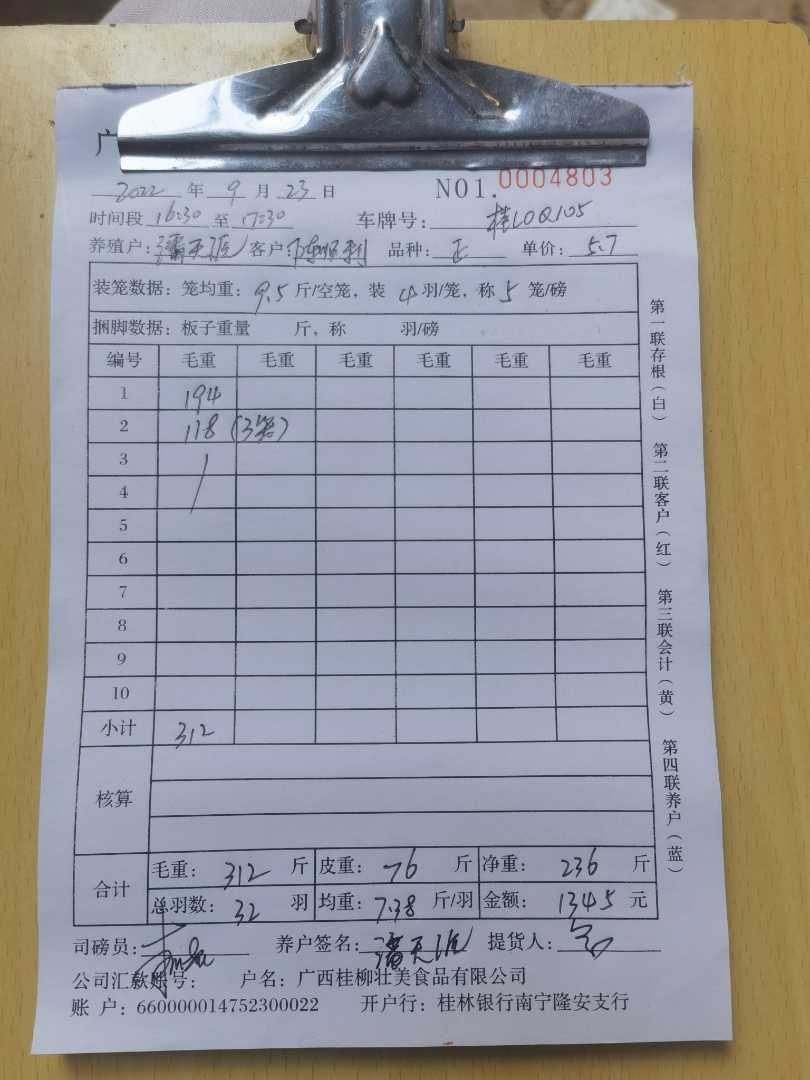 广
2022 年 9 月 23 日 NO1. 0004803
时间段 16:30 至 17:30 车牌号: 桂L0Q105
养殖户: 潘天派 客户: 品种: 正 单价: 5.7
装笼数据: 笼均重: 9.5 斤/空笼, 装 4 羽/笼, 称 5 笼/磅
捆脚数据: 板子重量 斤, 称 羽/磅
编号 毛重 毛重 毛重 毛重 毛重 毛重
1 194
2 118 (3笼)
3
4
5
6
7
8
9
10
小计 312
核算
合计 毛重: 312 斤 皮重: 76 斤 净重: 236 斤
总羽数: 32 羽 均重: 7.38 斤/羽 金额: 1345 元
司磅员: 养户签名: 潘天派 提货人:
公司汇款账号: 户名: 广西桂柳壮美食品有限公司
账 户: 660000014752300022 开户行: 桂林银行南宁隆安支行
第一联存根(白) 第二联客户(红) 第三联会计(黄) 第四联养户(蓝)